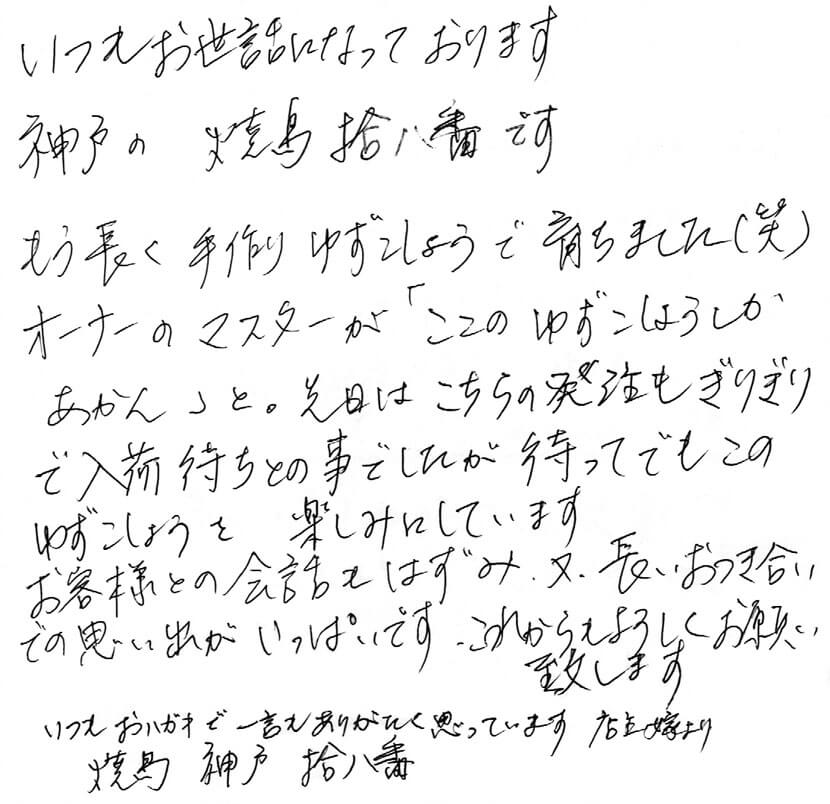 いつもお世話になっております
神戸の 焼鳥 拾八番です
もう長く手作りゆずこしょうで育ちました(笑)
オーナーのマスターが「ここのゆずこしょうしか
あかん」と。先日はこちらの発注もぎりぎり
で入荷待ちとの事でしたが待ってでもこの
ゆずこしょうを 楽しみにしています
お客様との会話もはずみ、又、長いおつき合い
での思い出がいっぱいです。これからもよろしくお願い
致します
いつもおハガキで一言もありがたく思っています 店主嫁より
焼鳥 神戸 拾八番